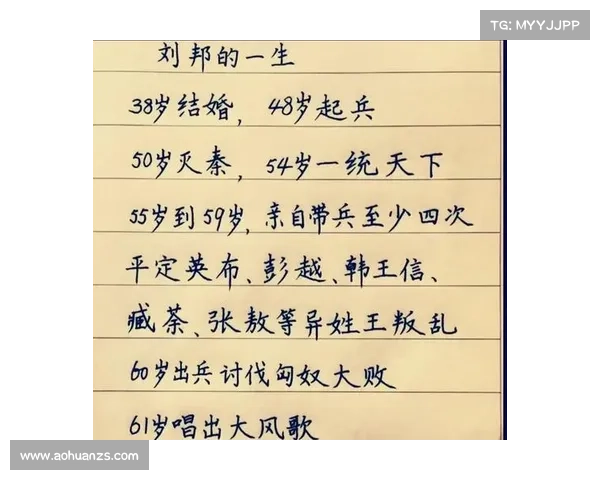 TG: MYYJJPP
刘邦的一生
38岁结婚，48岁起兵
50岁灭秦，54岁一统天下
55岁到59岁，亲自带兵至少四次
平定英布、彭越、韩王信、
臧荼、张敖等异姓王叛乱
60岁出兵讨伐匈奴大败
61岁唱出大风歌
www.aohuanzs.com